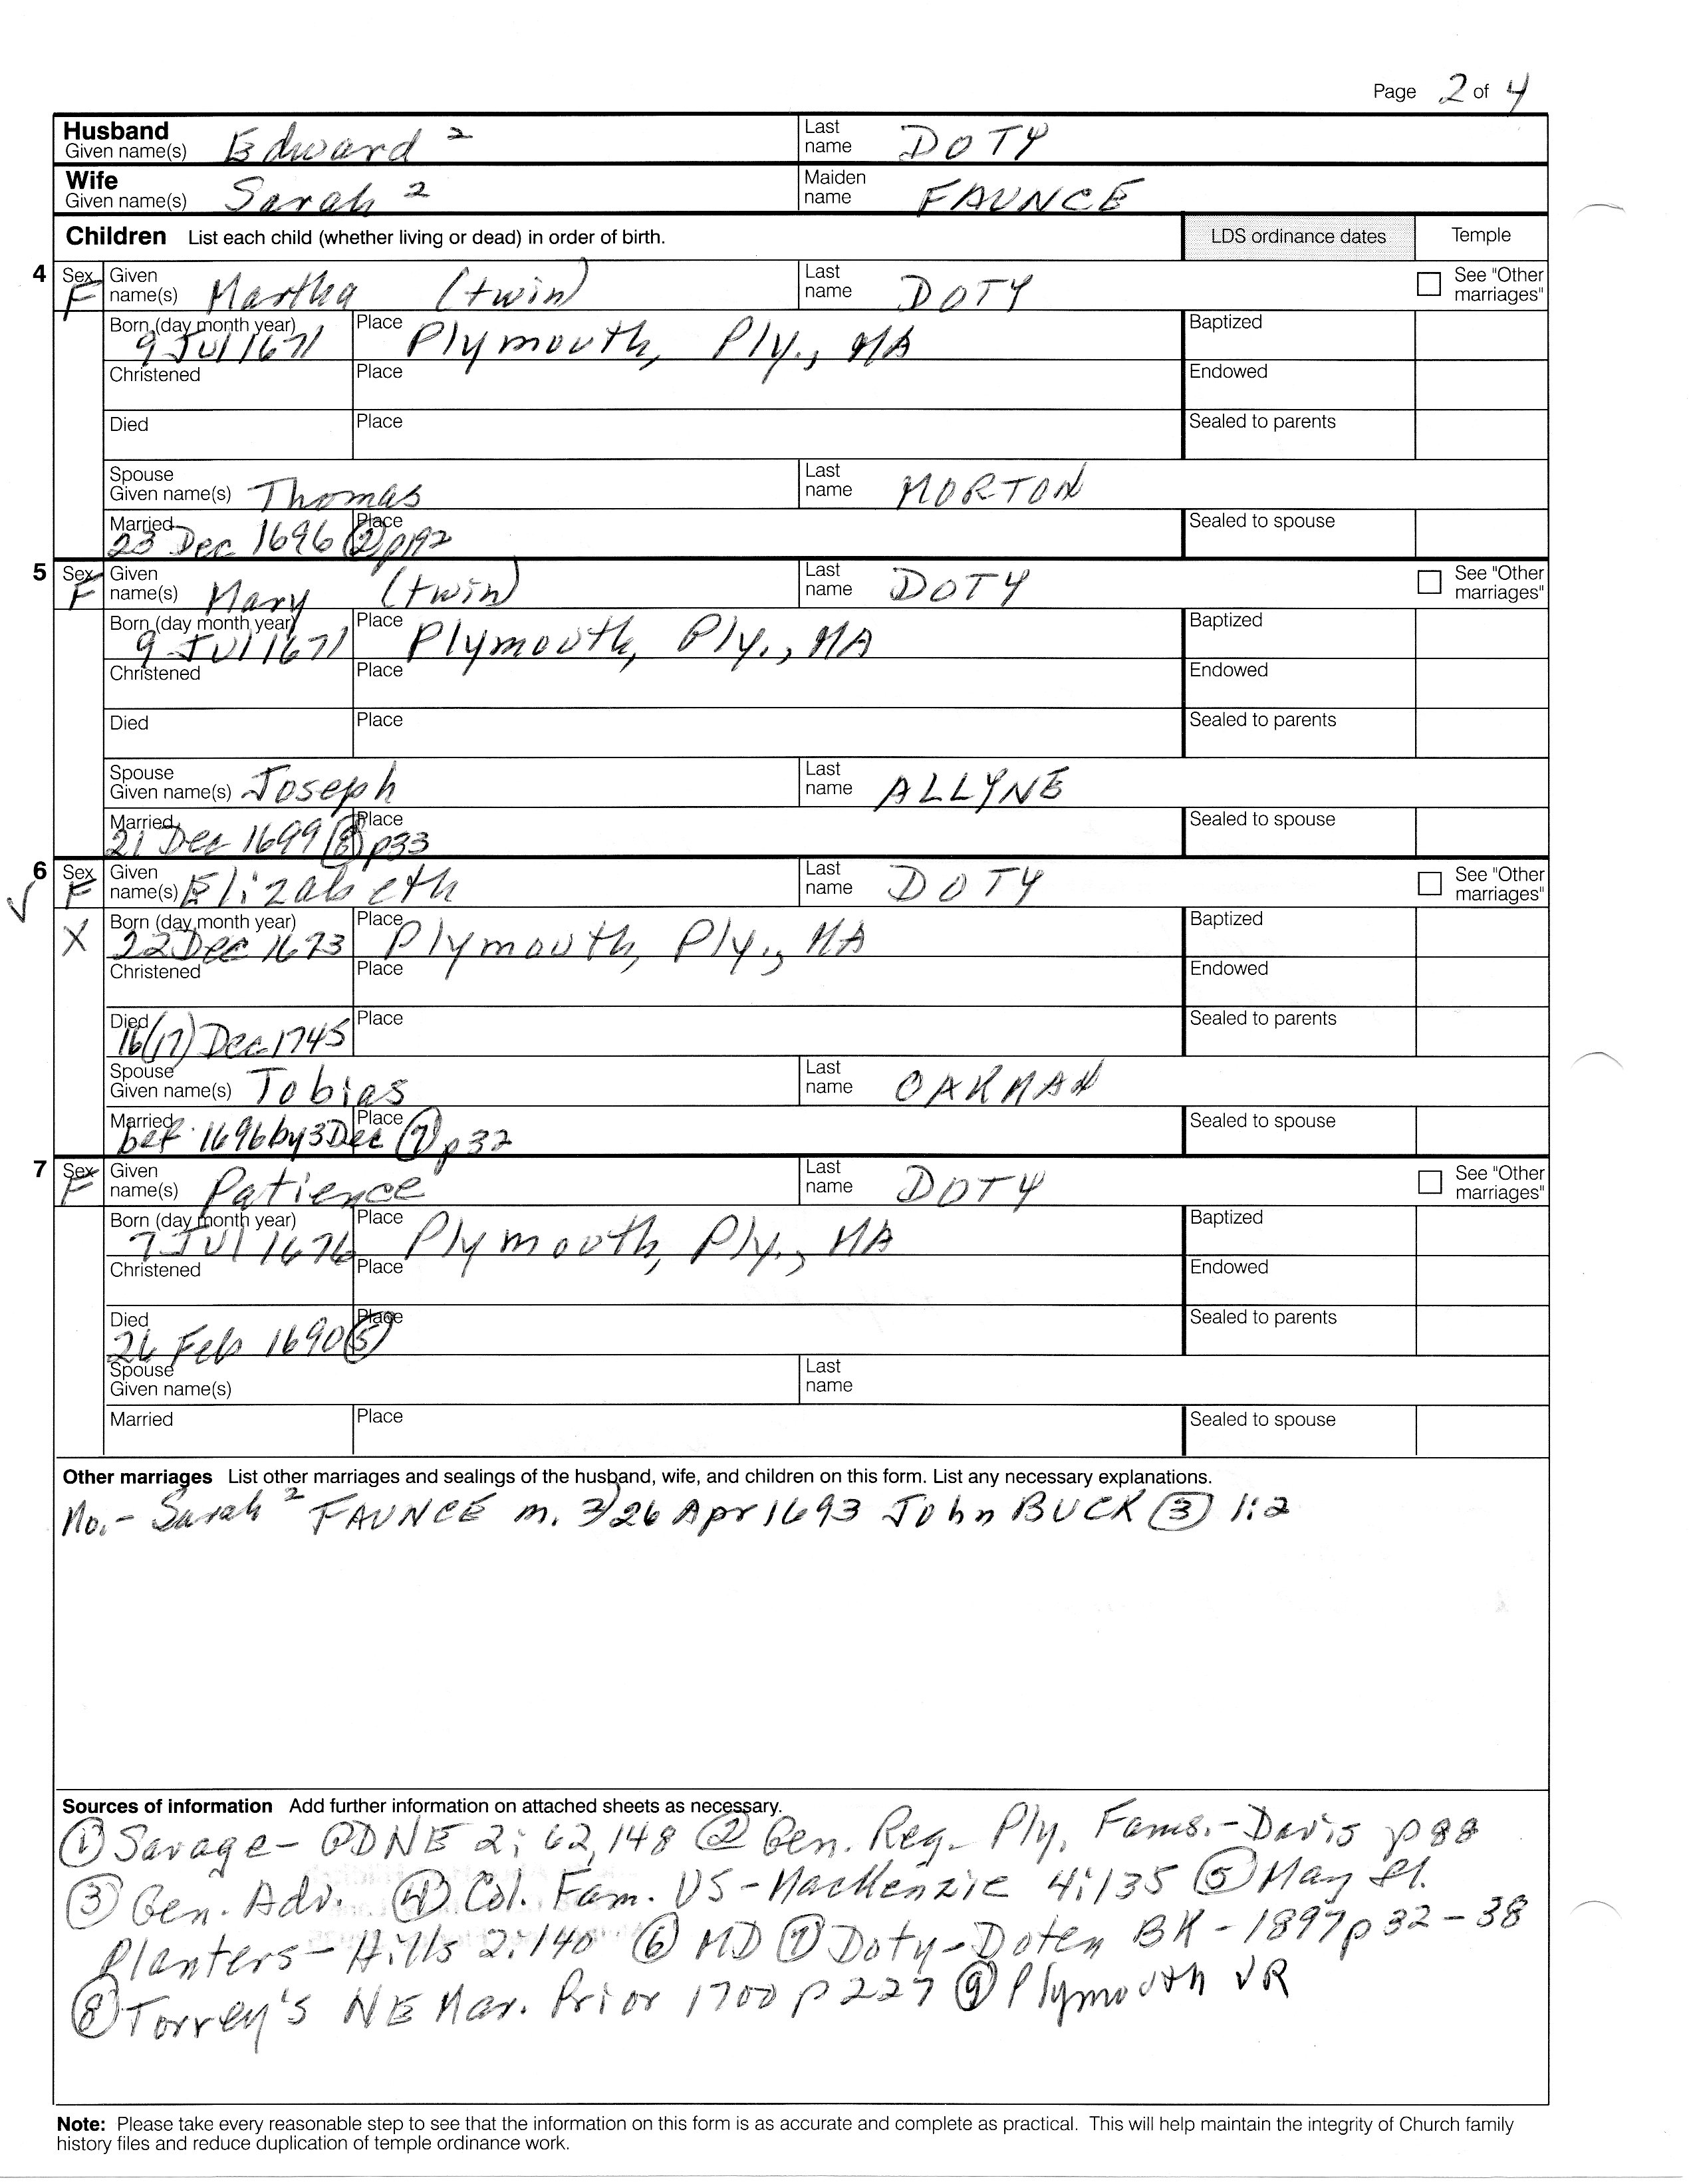 Page 2 of 4
Husband Given name(s) Edward 2 Last name DOTY
Wife Given name(s) Sarah 2 Maiden name FAUNCE
Children List each child (whether living or dead) in order of birth. LDS ordinance dates Temple
4 Sex F Given name(s) Martha (twin) Last name DOTY See "Other marriages"
Born (day month year) 9 Jul 1671 Place Plymouth, Ply., MA Baptized
Christened Place Endowed
Died Place Sealed to parents
Spouse Given name(s) Thomas Last name MORTON
Married 23 Dec 1696 (2) p192 Place Sealed to spouse
5 Sex F Given name(s) Mary (twin) Last name DOTY See "Other marriages"
Born (day month year) 9 Jul 1671 Place Plymouth, Ply., MA Baptized
Christened Place Endowed
Died Place Sealed to parents
Spouse Given name(s) Joseph Last name ALLYNE
Married 21 Dec 1699 (8) p33 Place Sealed to spouse
6 Sex F Given name(s) Elizabeth Last name DOTY See "Other marriages"
X Born (day month year) 22 Dec 1673 Place Plymouth, Ply., MA Baptized
Christened Place Endowed
Died 16(17) Dec 1745 Place Sealed to parents
Spouse Given name(s) Tobias Last name OAKMAN
Married bef. 1696 by 3 Dec (7) p32 Place Sealed to spouse
7 Sex F Given name(s) Patience Last name DOTY See "Other marriages"
Born (day month year) 7 Jul 1676 Place Plymouth, Ply., MA Baptized
Christened Place Endowed
Died 26 Feb 1690 (5) Place Sealed to parents
Spouse Given name(s) Last name
Married Place Sealed to spouse
Other marriages List other marriages and sealings of the husband, wife, and children on this form. List any necessary explanations.
Mo.- Sarah 2 FAUNCE m. 2) 26 Apr 1693 John BUCK (3) 1:2
Sources of information Add further information on attached sheets as necessary.
(1) Savage- GDNE 2; 62,148 (2) Gen. Reg- Ply. Fams.- Davis p88
(3) Gen. Adv. (4) Col. Fam. US - MacKenzie 4:135 (5) May fl.
Planters- Hills 2:140 (6) MD (7) Doty-Doten BK - 1897 p32-38
(8) Torrey's NE Mar. Prior 1700 p 227 (9) Plymouth VR
Note: Please take every reasonable step to see that the information on this form is as accurate and complete as practical. This will help maintain the integrity of Church family
history files and reduce duplication of temple ordinance work.